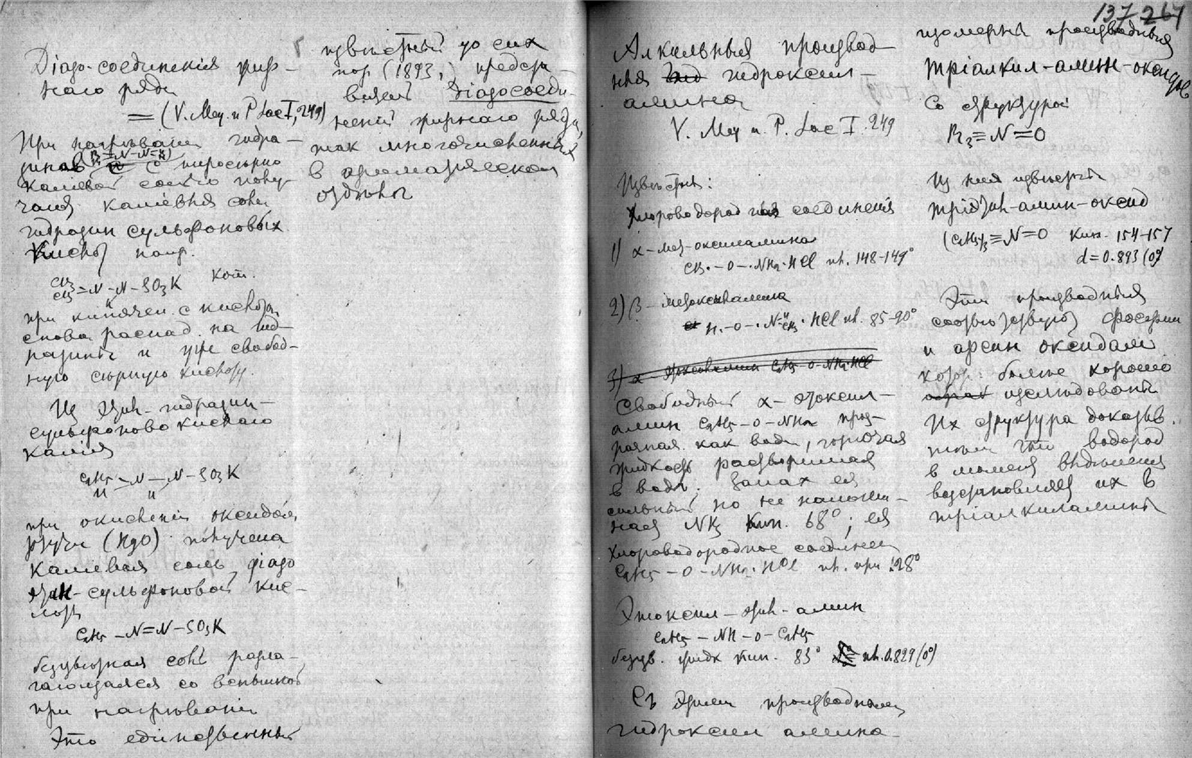 Діазо-соединенія жир-
наго ряда
= (V. Mey. u P. Jac I, 249)
При нагрѣваніи гидра-
зиновъ (R₂=N-N=) с пиросѣрно
калиевой солью полу-
чаются калиевыя соли
гидразин сульфоновых
кислот напр.
CH₃ CH₃ = N-N-SO₃K кот.
H
при кипячен. с кислотами
снова распад. на гид-
разины и уже свобод-
ную сѣрную кислоту.
Из этил-гидразин-
сульфоновокислаго
калия
C₂H₅-N-N-SO₃K
H H
при окисленіи оксидом
ртути (HgO) получена
калиевая соль діазо
этил-сульфоновой кис-
лоты
C₂H₅-N=N-SO₃K
безцвѣтная соль разла-
гающаяся со вспышкой
при нагрѣваніи
Это единственный
извѣстный до сих
пор (1893) представитель
Діазосоеди-
неній жирнаго ряда,
так многочисленных
в ароматическом
отдѣлѣ
137 267
Алкильныя производ-
ныя гидроксил-
амина
V. Mey u. P. Jac I. 249
Извѣстны:
Хлороводород соединенія
1) α-мет-оксиламина
CH₃-O-NH₂·HCl пл. 148-149°
2) β-
H-O-N H CH₃ · HCl пл. 85-90°
3) α- C₂H₅-O-NH₂HCl
Свободный α-этоксил-
амин C₂H₅-O-NH₂ проз-
рачная как вода, горючая
жидкость растворимая
в водѣ. Запах ея
сильный но не напоми-
ная NH₃ Кип. 68°; ея
хлороводородное соединен
C₂H₅-O-NH₂·HCl пл. при 128°
Этоксил-этил-амин
C₂H₅-NH-O-C₂H₅
безцв. жидк кип. 83° пл. 0.829 (0°)
Съ этими производными
гидроксил амина-
изомерны производныя
тріалкил-амин-оксидов
Со структурой
R₃≡N=O
Из них извѣстен
тріэтил-амин-оксид
(C₂H₅)₃≡N=O Кип. 154-157
d=0.893 (0°)
Эти производныя
соотвѣтствуют фосфин
и арсин оксидам
котор. болѣе хорошо
изслѣдованы
Их структура доказыв.
тѣм что водород
в момент выдѣленія
возстановляет их в
тріалкиламины